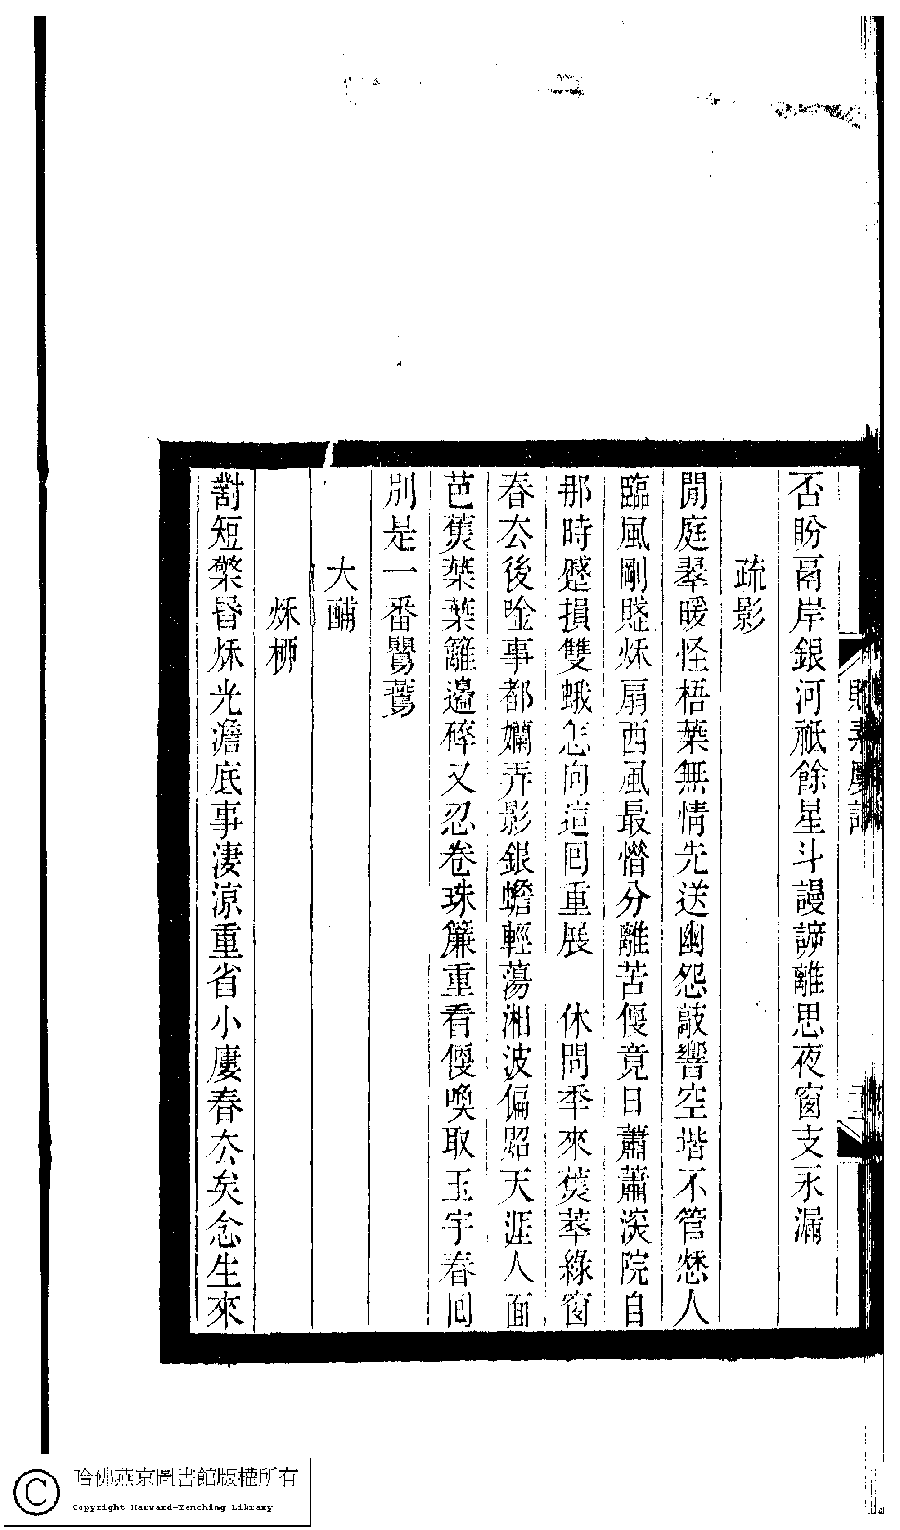 否盼鬲岸銀河祗餘星斗謾諦離思夜窗支永漏
疏影
閒庭翠暖怪梧葉無情先送幽怨敲響空堦不管愁人
臨風剛賸秌扇西風最憯分離苦偃竟日蕭蕭深院自
那時蹙損雙蛾怎向這回重展 休問秊來蕉萃綠窗
春厺後唫事都嬾弄影銀蟾輕蕩湘波偏照天涯人面
芭蕉葉葉籬邊碎又忍卷珠簾重看偃喚取玉宇春回
別是一番鸎鷰
大酺
秌柳
對短檠昏秌光澹底事淒涼重省小廔春厺矣念生來
哈佛燕京圖書館版權所有
Copyright Harvard-Yenching Library